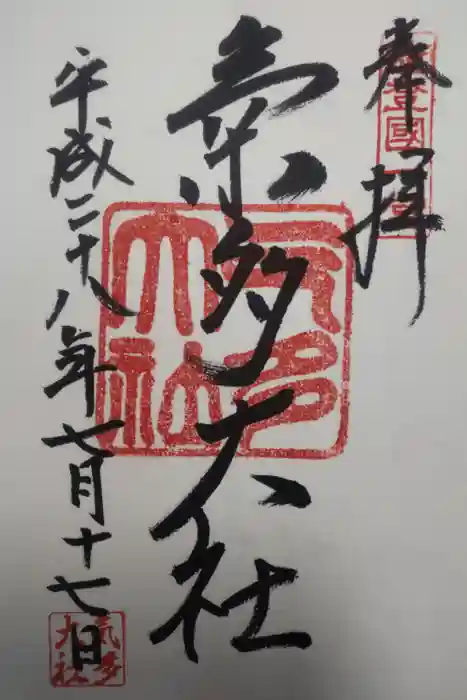 奉拝
能登國一宮
氣多大社
气多大社
平成二十八年七月十七日
氣多大社